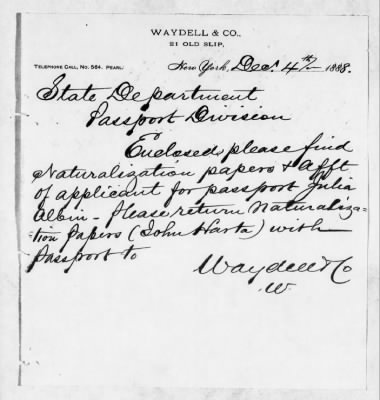 WAYDELL & CO.,
21 OLD SLIP,
TELEPHONE CALL, NO. 564. PEARL.
New York, Dec. 4th 1888.
State Department
Passport Division
Enclosed please find
Naturalization papers & afft
of applicant for passport Julia
Albin - Please return Naturaliza=
tion Papers (John Harta) with
passport to
Waydell & Co
W.